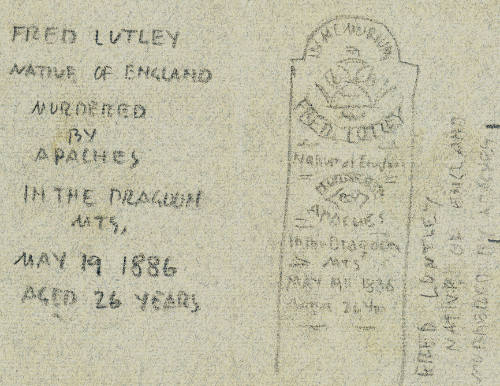 FRED LUTLEY
NATIVE OF ENGLAND
MURDERED
BY
APACHES
IN THE DRAGOON
MTS,
MAY 19 1886
AGED 26 YEARS
IN MEMORIUM
FRED. LUTLEY
Native of England
APACHES
In the Dragoon
MTS
MAY 19th 1886
FRED LUNTLEY
NATIVE OF ENGLAND
MURDERED BY APACHES